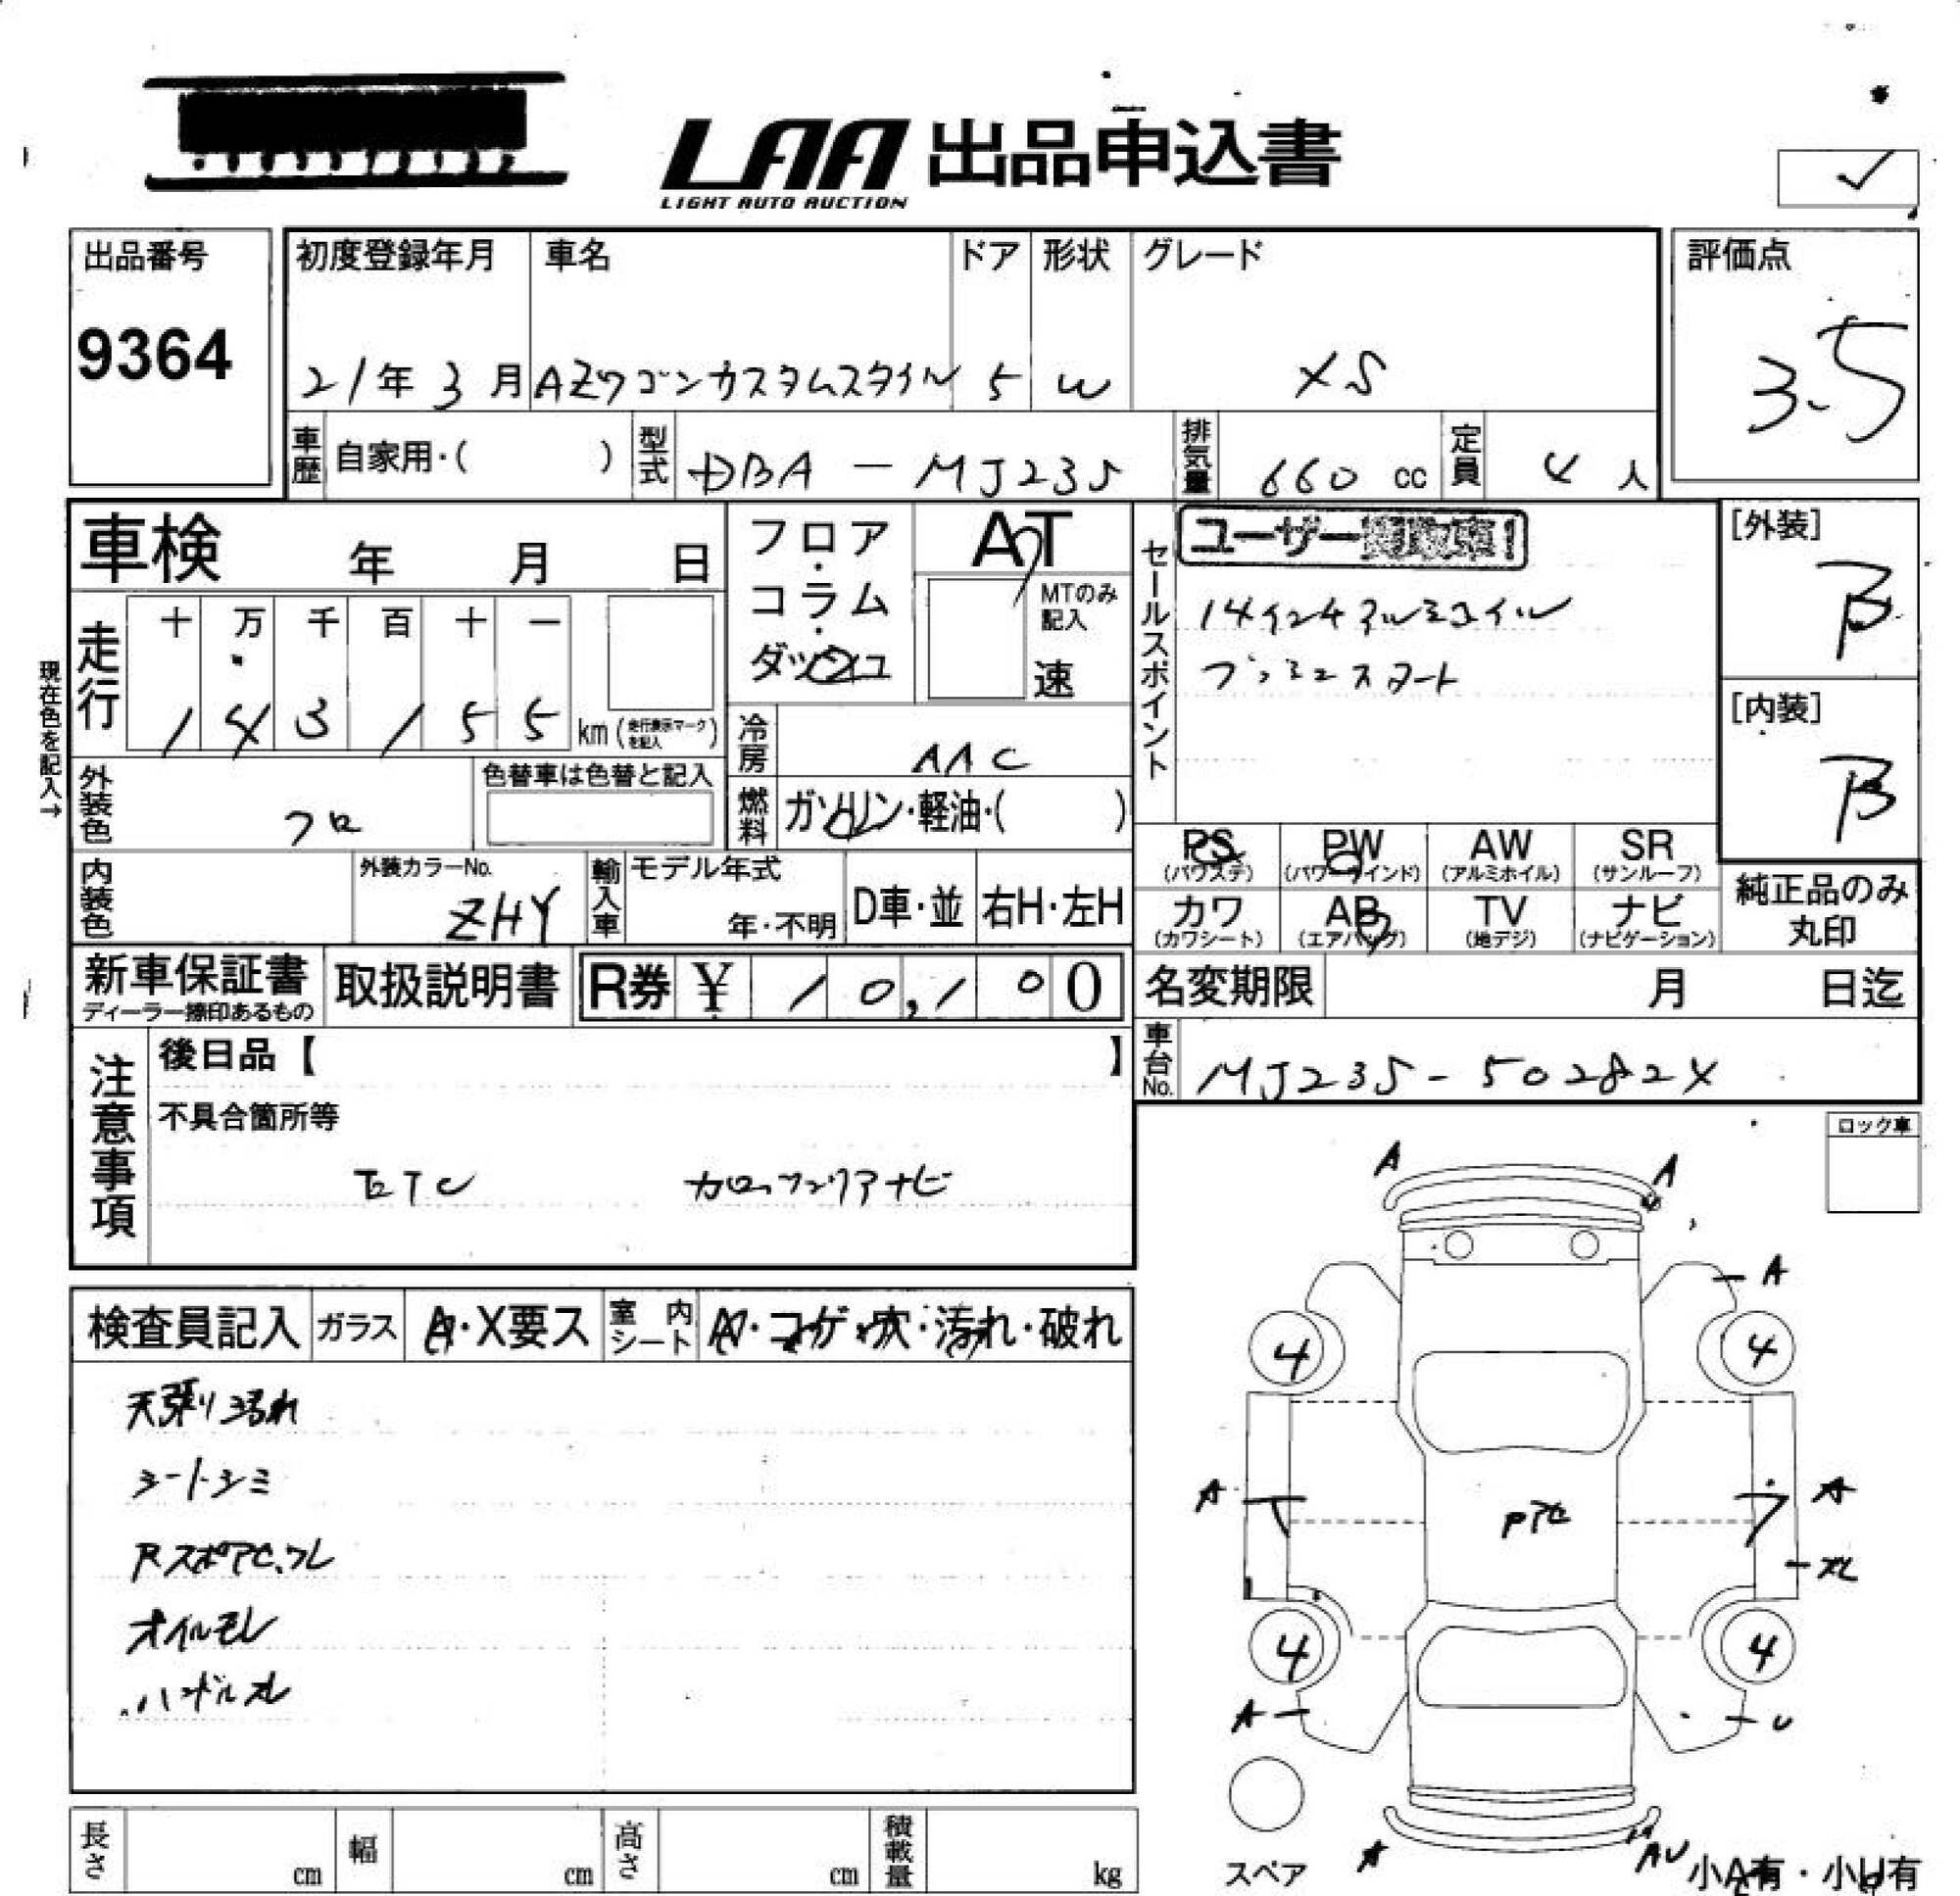 LAA 出品申込書
LIGHT AUTO AUCTION
出品番号
9364
初度登録年月 車名 ドア 形状 グレード
21年 3月 AZワゴンカスタムスタイル 5 W XS
評価点
3.5
車歴 自家用・( ) 型式 DBA-MJ23S 排気量 660 cc 定員 4 人
車検 年 月 日
フロア・コラム・ダッシュ
AT
MTのみ記入
速
セールスポイント
ユーザー
14インチアルミホイル
プッシュスタート
[外装]
B
[内装]
B
現在色を記入→
走行 十 万 千 百 十 一
1 4 3 1 5 5 km (走行表示マークを記入)
冷房 AAC
外装色 クロ
色替車は色替と記入
燃料 ガソリン・軽油・( )
内装色
外装カラーNo.
ZHY
輸入車 モデル年式
年・不明
D車・並 右H・左H
PS (パワステ) PW (パワーウインド) AW (アルミホイル) SR (サンルーフ)
カワ (カワシート) AB (エアバッグ) TV (地デジ) ナビ (ナビゲーション)
純正品のみ
丸印
新車保証書
ディーラー捺印あるもの
取扱説明書
R券 ¥ 10,100
名変期限 月 日迄
車台No. MJ23S-50282X
注意事項
後日品【 】
不具合箇所等
ETC カロッツェリアナビ
ロック車
検査員記入 ガラス A・X要ス 室内シート A・コゲ・穴・汚れ・破れ
天張り汚れ
シートシミ
RスポアC、ワレ
オイルモレ
ハンドルスレ
A A
A
4 4
A A
PAC
4 4
A U
A AU
スペア
小A有・小U有
長さ cm 幅 cm 高さ cm 積載量 kg